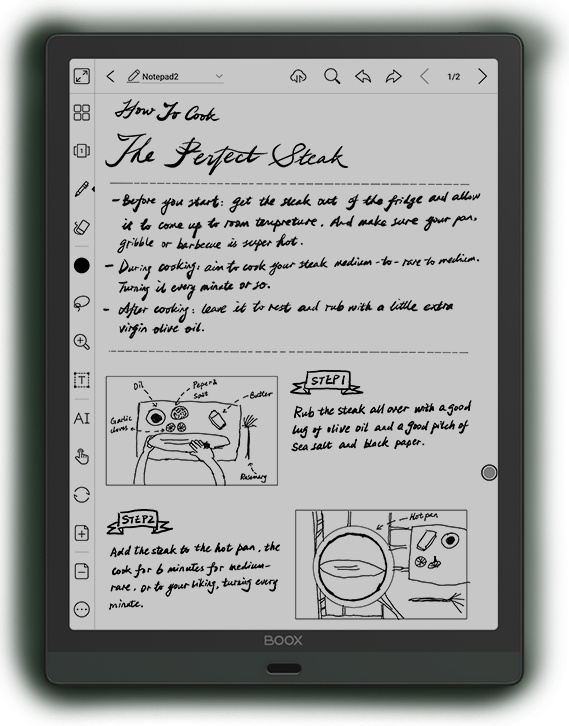 Notepad2
1/2
How To Cook
The Perfect Steak
- Before you start: get the steak out of the fridge and allow
it to come up to room tempreture. And make sure your pan,
gribble or barbecue is super hot.
- During cooking: aim to cook your steak medium-to-rare to medium.
Turning it every minute or so.
- After cooking: leave it to rest and rub with a little extra
virgin olive oil.
Oil
Peper &
Salt
Butter
Gaelic
cloves
Rosemary
STEP1
Rub the steak all over with a good
lug of olive oil and a good pitch of
Sea salt and black paper.
STEP2
Add the steak to the hot pan, the
cook for 6 minutes for medium-
rare, or to your liking, turing every
minute.
Hot pan
AI
BOOX